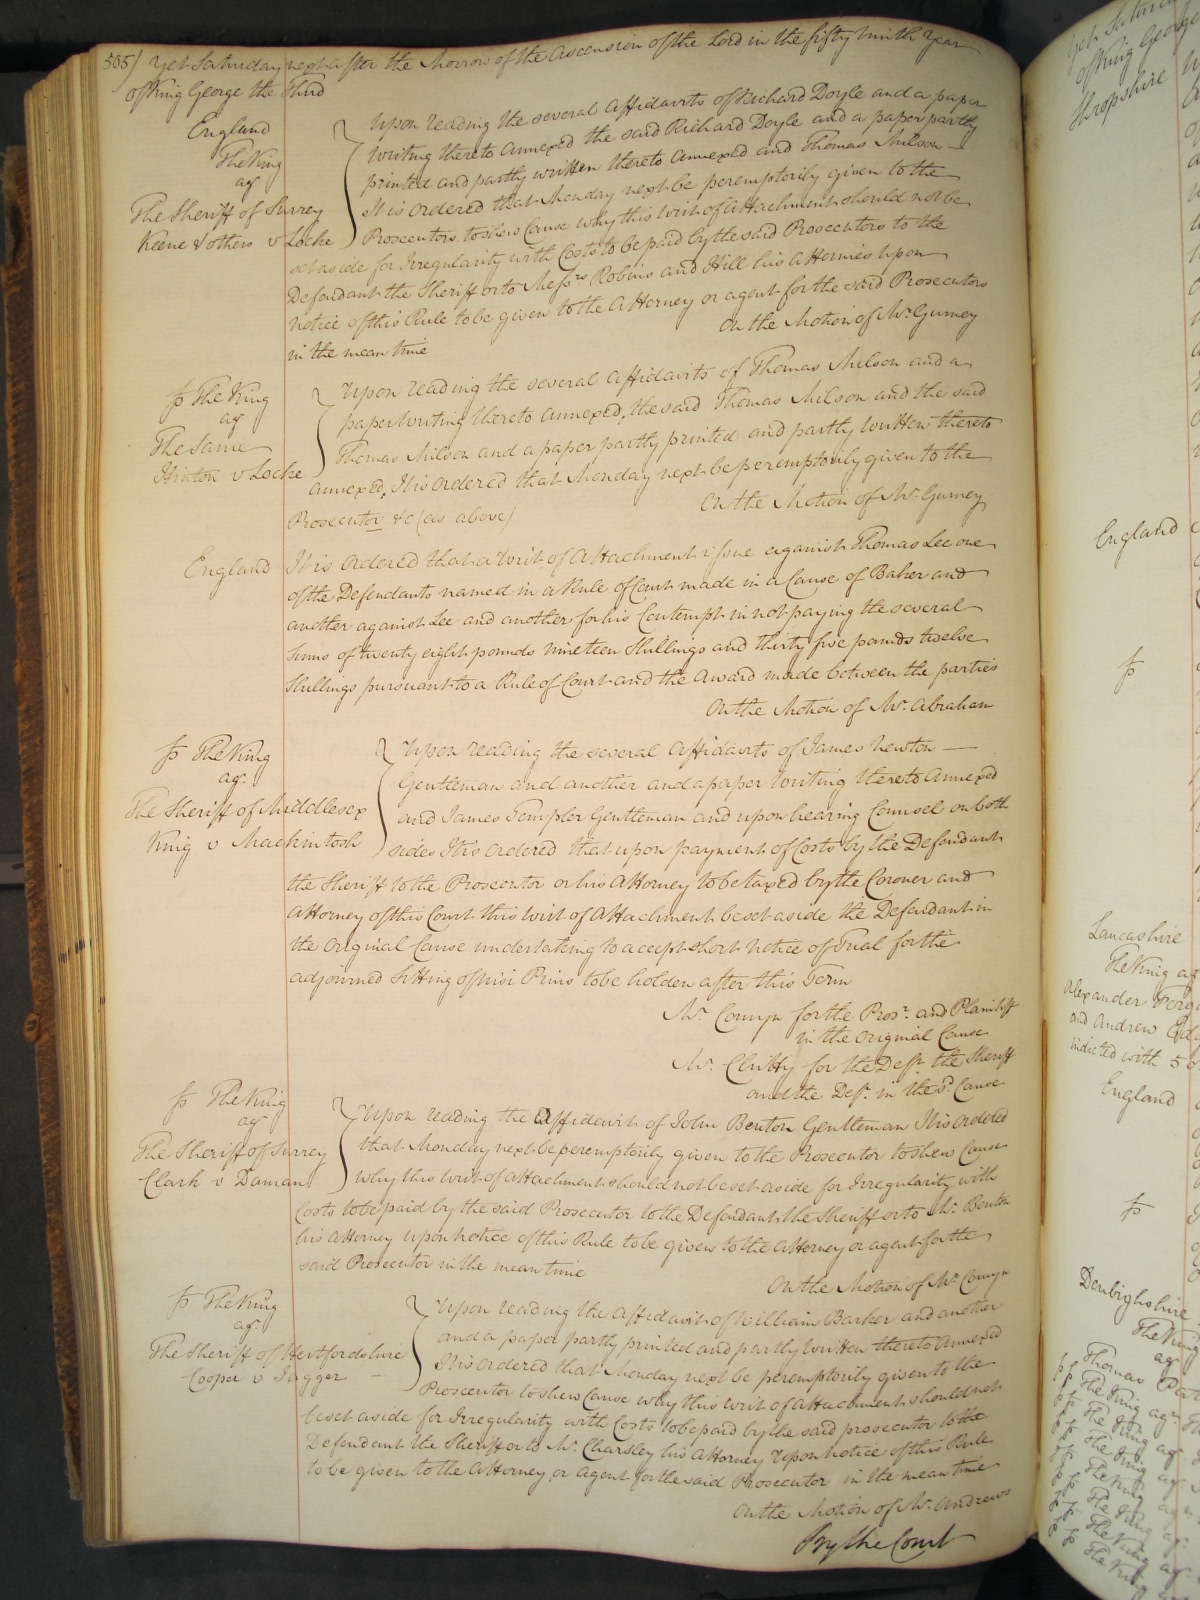 505) Yet Saturday next after the Morrow of the Ascension of the Lord in the fifty ninth Year
of King George the Third
England
The King
agt
The Sheriff of Surrey
Keene & others v Locke
Upon reading the several Affidavits of Richard Doyle and a paper
Writing thereto annexed the said Richard Doyle and a paper partly
printed and partly written thereto annexed and Thomas Milson
It is Ordered that Monday next be peremptorily given to the
Prosecutors to shew Cause why this Writ of Attachment should not be
set aside for Irregularity with Costs to be paid by the said Prosecutors to the
Defendant the Sheriff or to Messrs Robins and Hill his Attornies upon
notice of this Rule to be given to the Attorney or agent for the said Prosecutors
in the mean time
On the Motion of Mr Gurney
The King
agt
The Same
Hinton v Locke
Upon reading the several Affidavits of Thomas Milson and a
paper Writing thereto annexed, the said Thomas Milson and the said
Thomas Milson and a paper partly printed and partly written thereto
annexed, It is Ordered that Monday next be peremptorily given to the
Prosecutor &c (as above)
On the Motion of Mr Gurney
England
It is Ordered that a Writ of Attachment issue against Thomas Lee one
of the Defendants named in a Rule of Court made in a Cause of Baker and
another against Lee and another for his Contempt in not paying the several
Sums of twenty eight pounds nineteen Shillings and thirty five pounds twelve
Shillings pursuant to a Rule of Court and the Award made between the parties
On the Motion of Mr Abraham
The King
agt
The Sheriff of Middlesex
King v Mackintosh
Upon reading the several Affidavits of James Newton
Gentleman and another and a paper Writing thereto annexed
and James Templer Gentleman and upon hearing Counsel on both
sides It is Ordered that upon payment of Costs by the Defendant
the Sheriff to the Prosecutor or his Attorney to be taxed by the Coroner and
Attorney of this Court this Writ of Attachment be set aside the Defendant in
the Original Cause undertaking to accept short notice of Trial for the
adjourned Sitting of Nisi Prius to be holden after this Term
Mr Comyn for the Prosr and Plaintiff
in the Original Cause
Mr Chitty for the Deft the Sheriff
and the Deft in the sd Cause
The King
agt
The Sheriff of Surrey
Clark v Daman
Upon reading the Affidavit of John Benton Gentleman It is Ordered
that Monday next be peremptorily given to the Prosecutor to shew Cause
Why this Writ of Attachment should not be set aside for Irregularity with
Costs to be paid by the said Prosecutor to the Defendant the Sheriff or to Mr Benton
his Attorney upon notice of this Rule to be given to the Attorney or agent for the
said Prosecutor in the mean time
On the Motion of Mr Comyn
The King
agt
The Sheriff of Hertfordshire
Cooper v Jugger
Upon reading the Affidavit of William Barker and another
and a paper partly printed and partly written thereto annexed
It is Ordered that Monday next be peremptorily given to the
Prosecutor to shew Cause why this Writ of Attachment should not
be set aside for Irregularity with Costs to be paid by the said prosecutor to the
Defendant the Sheriff or to Mr Charsley his Attorney upon notice of this Rule
to be given to the Attorney or agent for the said Prosecutor in the mean time
On the Motion of Mr Andrews
By the Court
Yet Saturday
of King George
Shropshire
England
Lancashire
The King agt
Alexander
and Andrew
indicted with 5
England
Denbighshire
The King
agt
Thomas
The King agt
The King agt
The King agt
The King agt
The King agt
The King agt
The King